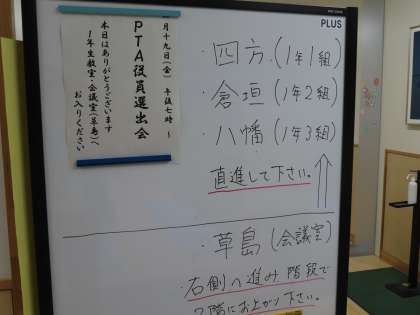 PLUS
月十九日(金) 午後七時~
PTA役員選出会
本日はありがとうございます
1年生教室・会議室(草島)へ
お入りください
・四方(1年1組)
・倉垣(1年2組)
・八幡(1年3組)
直進して下さい。
・草島(会議室)
・右側へ進み階段で
2階にお上がり下さい。